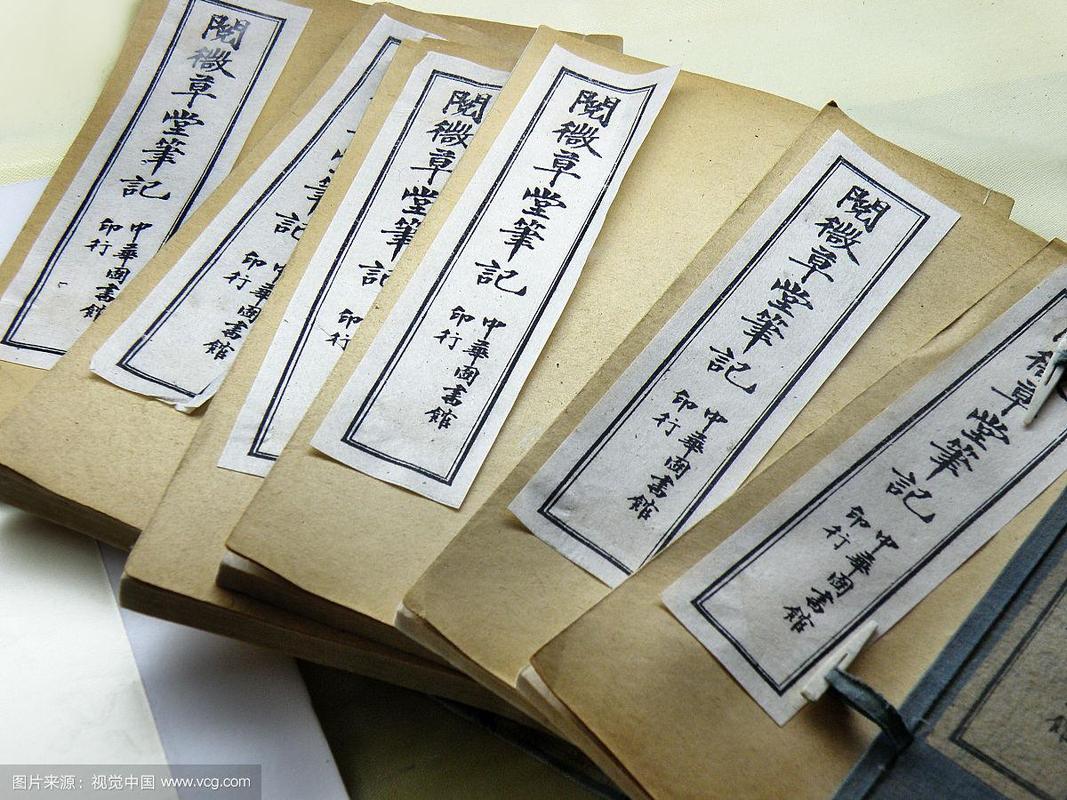 閱微草堂筆記
中華圖書館
印行
筆記
中華圖書館
印行
閱微草堂筆記
印行
閱微草堂筆記
中華圖書館
印行
閱微草堂筆記
中華圖書館
印行
微草堂筆記
中華圖書館
印行
图片来源：视觉中国 www.vcg.com